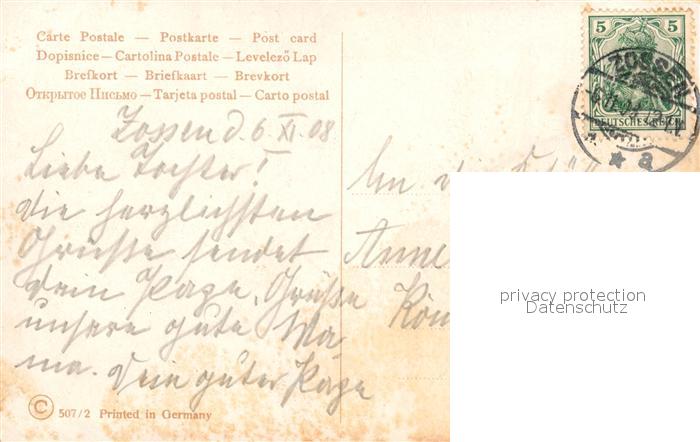 Carte Postale — Postkarte — Post card
Dopisnice — Cartolina Postale — Levelező Lap
Brefkort — Briefkaart — Brevkort
Открытое Письмо — Tarjeta postal — Carto postal
5 5
DEUTSCHES REICH
ZOSSEN
* a
Zossen d. 6 XI. 08
Liebe Tochter!
die herzlichsten
Grüsse sendet
dein Papa, Grüße
unsere gute Ma-
ma. Dein guter Papa
An die
Anne
Kön
privacy protection
Datenschutz
© 507/2 Printed in Germany